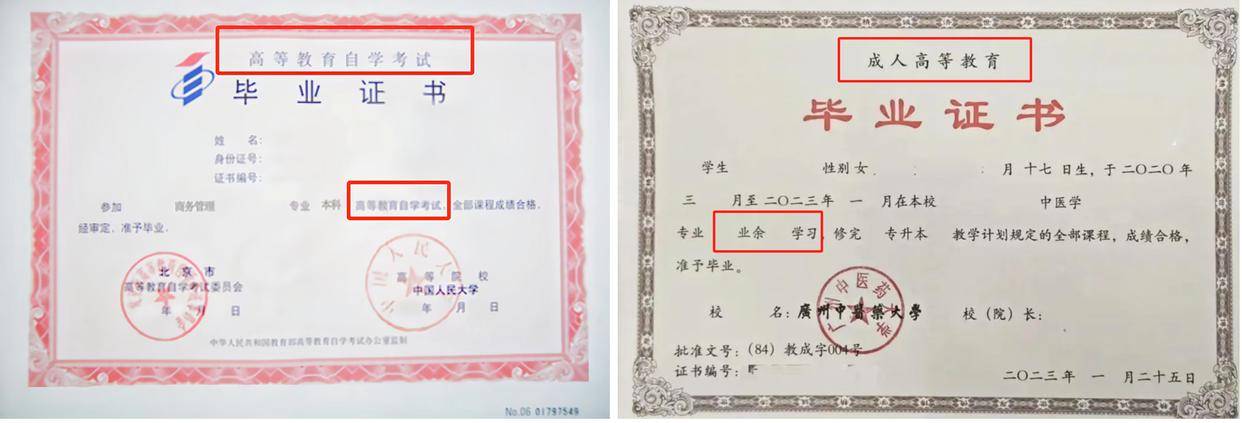 高等教育自学考试
毕业证书
姓 名:
身份证号:
证书编号:
参加 商务管理 专业 本科 高等教育自学考试, 全部课程成绩合格,
经审定, 准予毕业.
北京市
高等教育自学考试委员会
年 月 日
高等院校
中国人民大学
年 月 日
中华人民共和国教育部高等教育自学考试办公室监制
No.06 01797549
成人高等教育
毕业证书
学生 性别 女 月 十七 日生, 于 二〇二〇 年
三 月至 二〇二三年 一 月在本校 中医学
专业 业余 学习, 修完 专升本 教学计划规定的全部课程, 成绩合格,
准予毕业。
广州中医药大学
校 名: 廣州中醫藥大學 校(院)长:
批准文号: (84) 教成字004号
证书编号:
二〇二三年 一 月二十五日